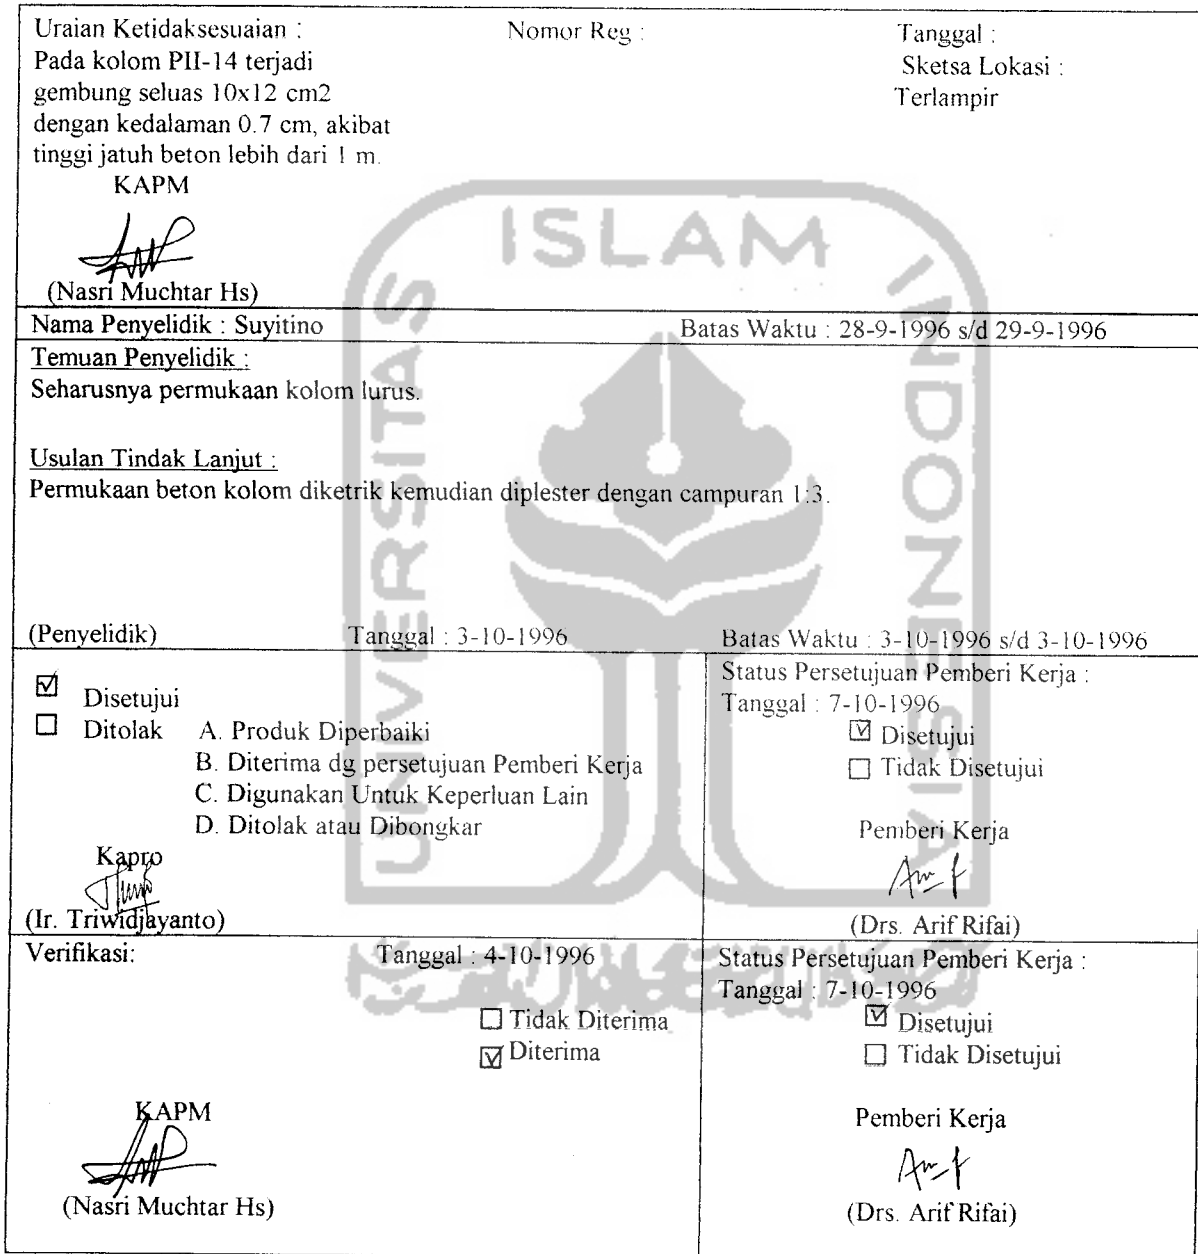 Uraian Ketidaksesuaian :
Nomor Reg :
Tanggal :
Pada kolom PII-14 terjadi
Sketsa Lokasi :
gembung seluas 10x12 cm2
Terlampir
dengan kedalaman 0.7 cm, akibat
tinggi jatuh beton lebih dari 1 m.
KAPM
(Nasri Muchtar Hs)
Nama Penyelidik : Suyitino
Batas Waktu : 28-9-1996 s/d 29-9-1996
Temuan Penyelidik :
Seharusnya permukaan kolom lurus.
Usulan Tindak Lanjut :
Permukaan beton kolom diketrik kemudian diplester dengan campuran 1:3.
(Penyelidik)
Tanggal : 3-10-1996
Batas Waktu : 3-10-1996 s/d 3-10-1996
Disetujui
Ditolak A. Produk Diperbaiki
B. Diterima dg persetujuan Pemberi Kerja
C. Digunakan Untuk Keperluan Lain
D. Ditolak atau Dibongkar
Kapro
(Ir. Triwidjayanto)
Status Persetujuan Pemberi Kerja :
Tanggal : 7-10-1996
Disetujui
Tidak Disetujui
Pemberi Kerja
(Drs. Arif Rifai)
Verifikasi:
Tanggal : 4-10-1996
Tidak Diterima
Diterima
KAPM
(Nasri Muchtar Hs)
Status Persetujuan Pemberi Kerja :
Tanggal : 7-10-1996
Disetujui
Tidak Disetujui
Pemberi Kerja
(Drs. Arif Rifai)
UNIVERSITAS
ISLAM
INDONESIA